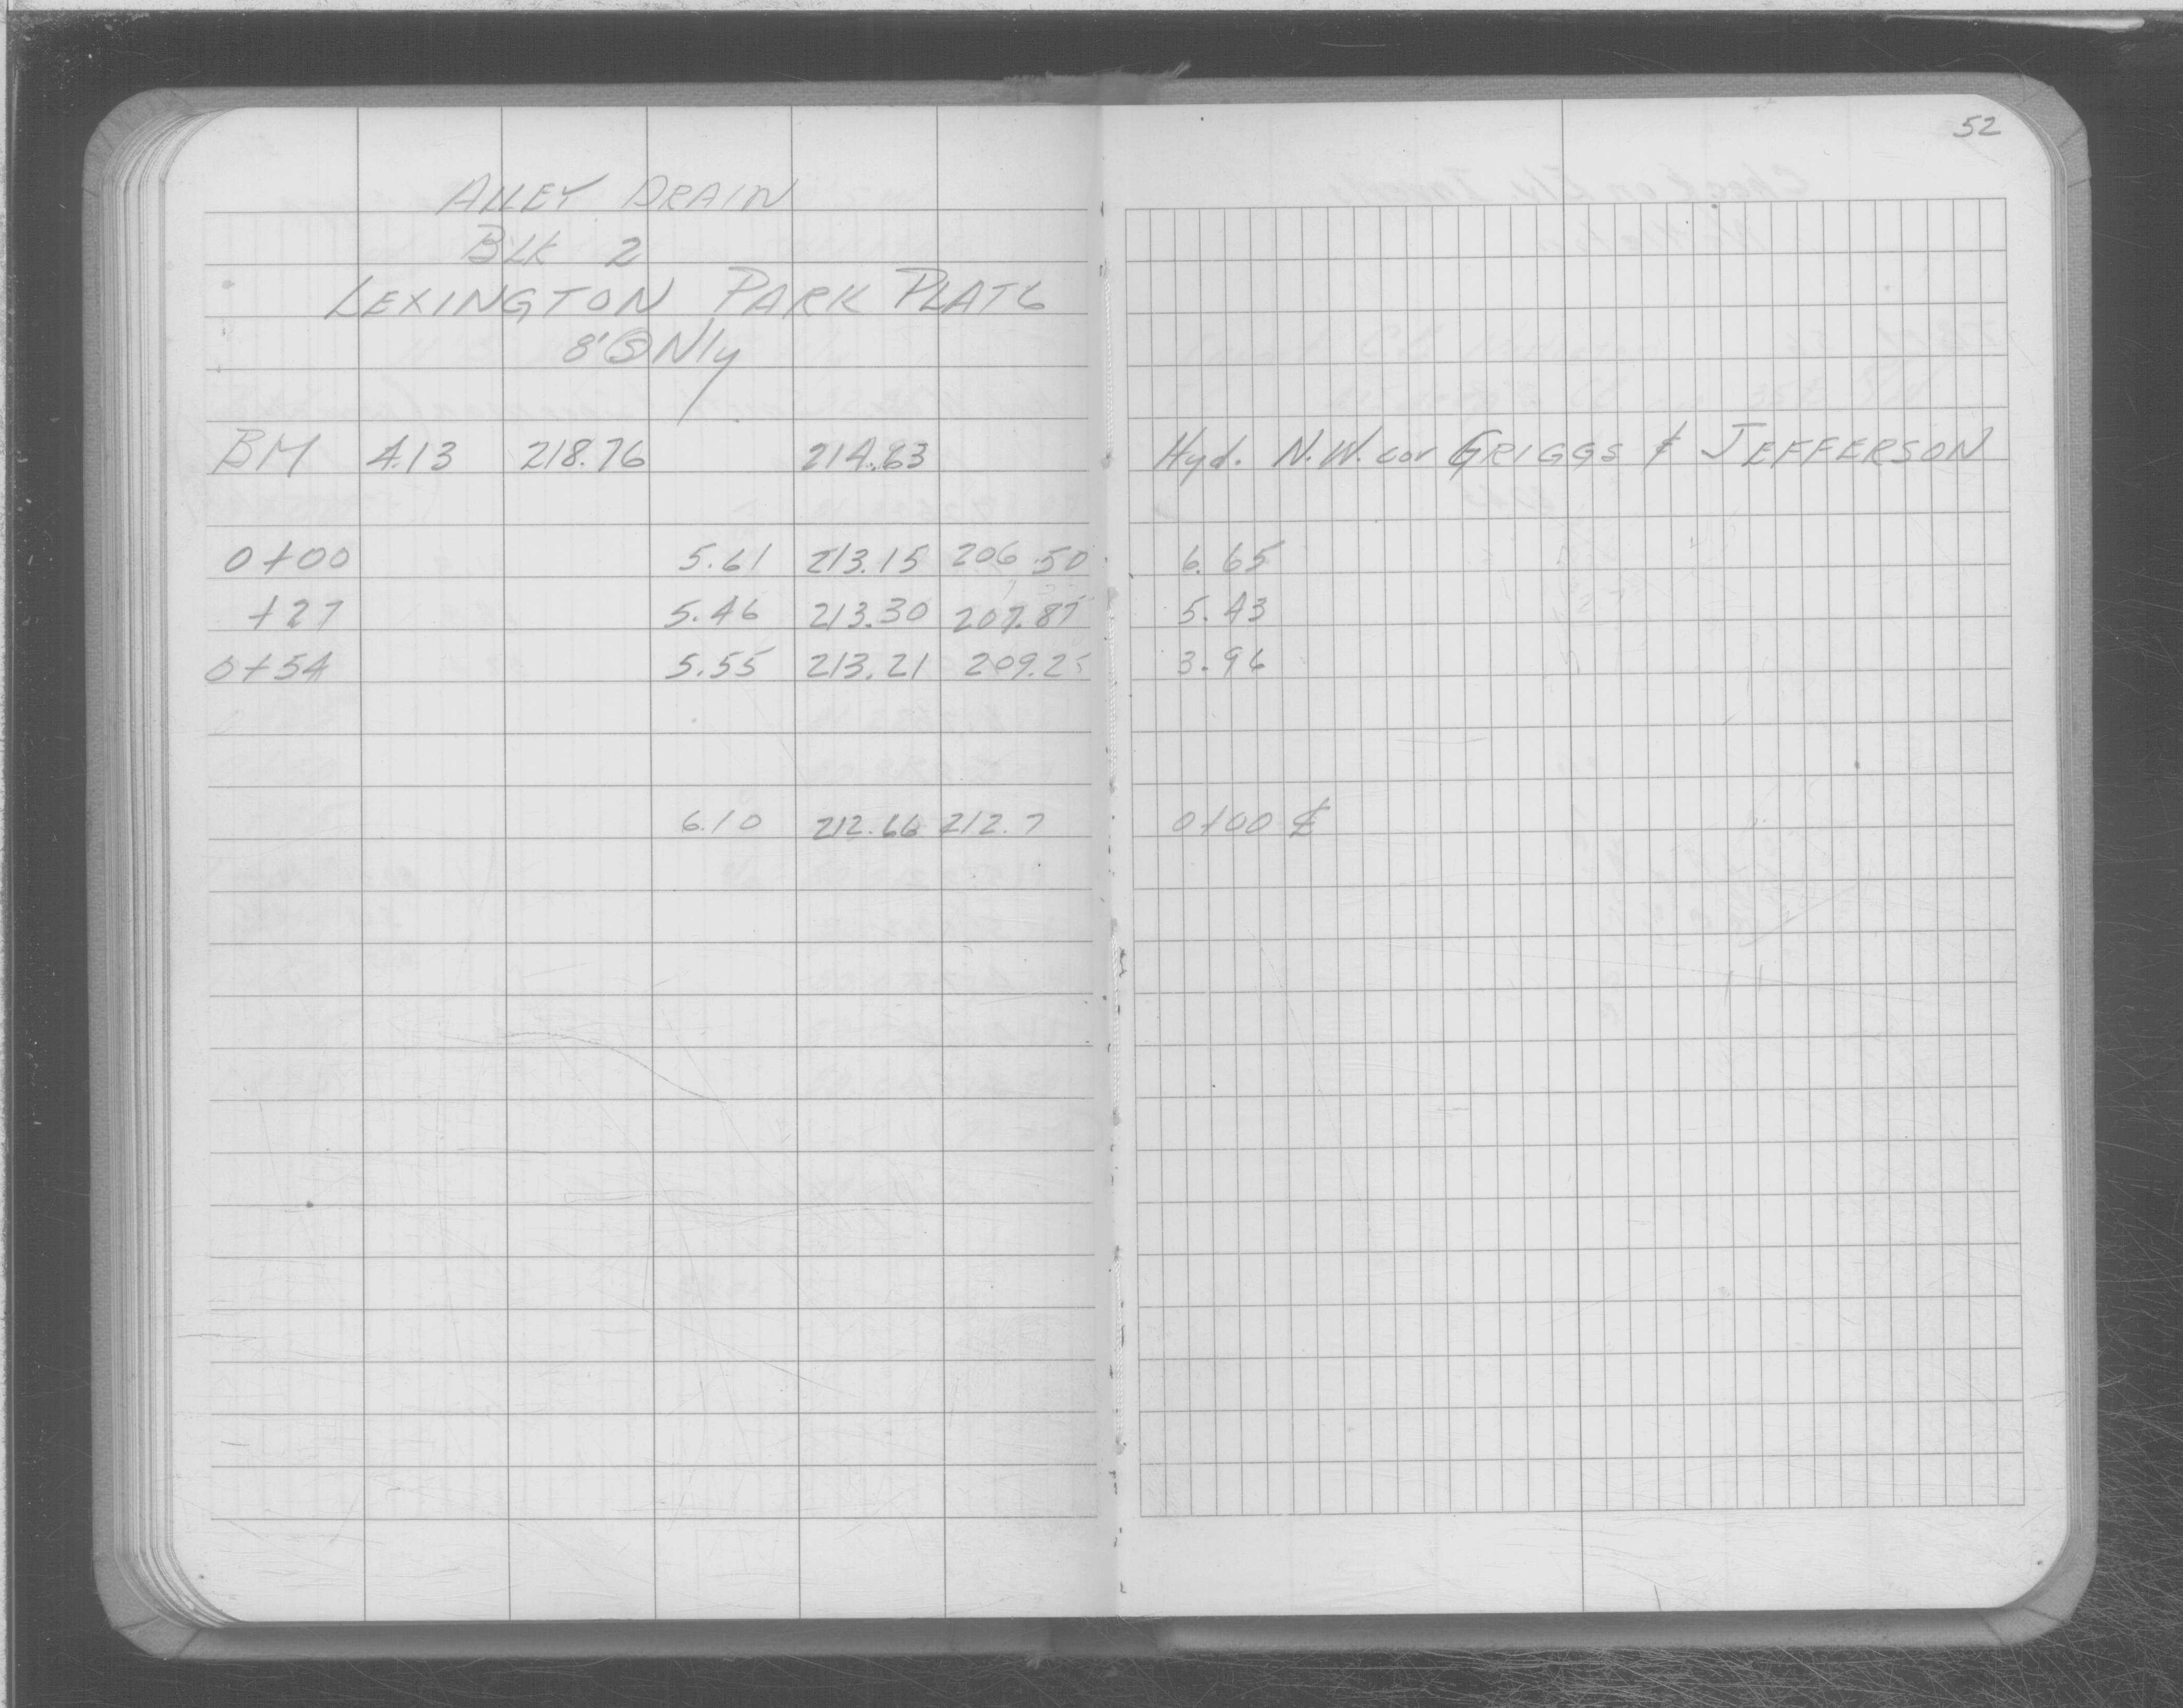 52
ALLEY DRAIN
BLK 2
LEXINGTON PARK PLAT 6
8' Ⓢ Nly
BM 4.13 218.76 214.63 Hyd. N.W. cor GRIGGS & JEFFERSON
0+00 5.61 213.15 206.50 6.65
+27 5.46 213.30 207.87 5.43
0+54 5.55 213.21 209.25 3.96
6.10 212.66 212.7 0+00 ℄